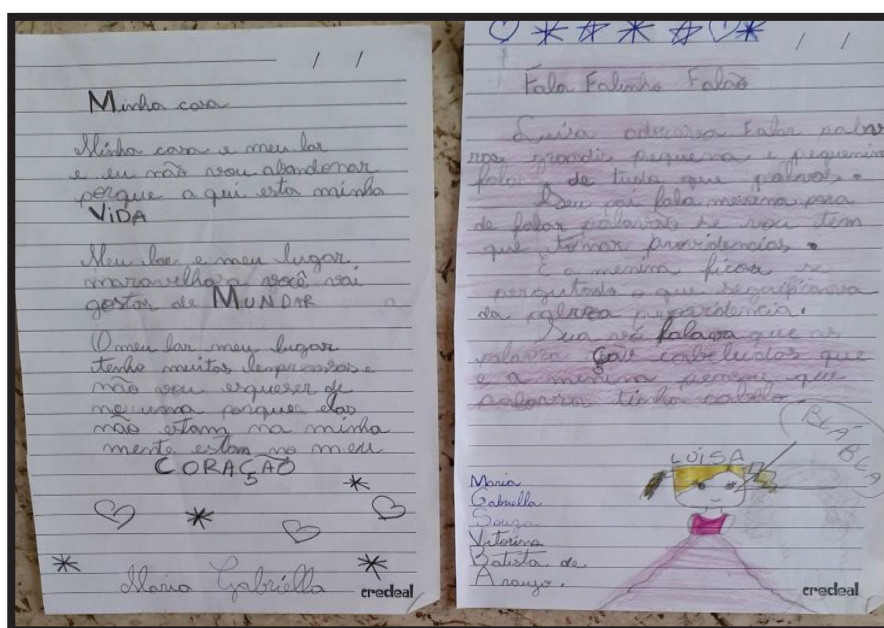 / /
Minha casa
Minha casa e meu lar
e eu não vou abandonar
porque a qui esta minha
VIDA
Meu lar e meu lugar
maravilhoso você vai
gostar de MUNDAR
O meu lar meu lugar
tenho muitas lempransas e
não vou esqueser de
ne uma porque elas
não estam na minha
mente estam no meu
CORAÇÃO
Maria Gabriella
credeal
/ /
Fala Falinha Falão
Luisa adorarsa Falar palav
ras grandis pequena e pequenin
fala de tuda que
Seu pai fala menina para
de falar palavão se vou tem
que tomar providencias.
E a menina ficou se
pergutado o que
da
Sua vó falava que as
palavra cabeludas que
e a menina pensou que
palavra tinha cabelo.
BLÁ BLA
LUISA
Maria
Gabriella
Souza
Vitorina
Batista de
Araujo.
credeal